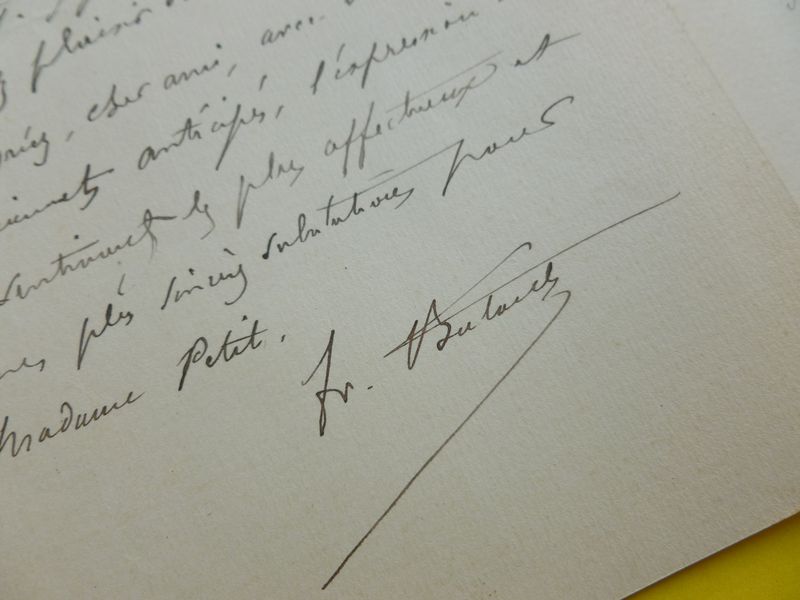 plaisir
cher ami, avec
anticipés, l'expression
sentiments les plus affectueux et
mes plus sincères salutations pour
Madame Petit.
Fr.